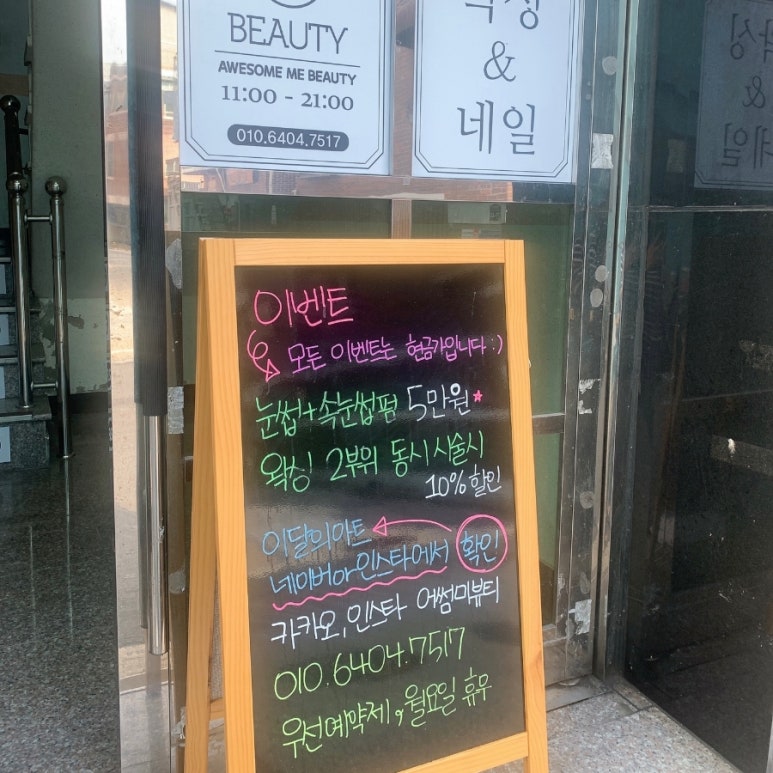 BEAUTY
AWESOME ME BEAUTY
11:00 - 21:00
010.6404.7517
&
네일
이벤트
모든 이벤트는 현금가입니다 :)
눈썹+속눈썹펌 5만원
왁싱 2부위 동시시술시
10% 할인
이달의아트
네이버or인스타에서 확인
카카오, 인스타 어썸미뷰티
010.6404.7517
우선예약제, 월요일 휴무